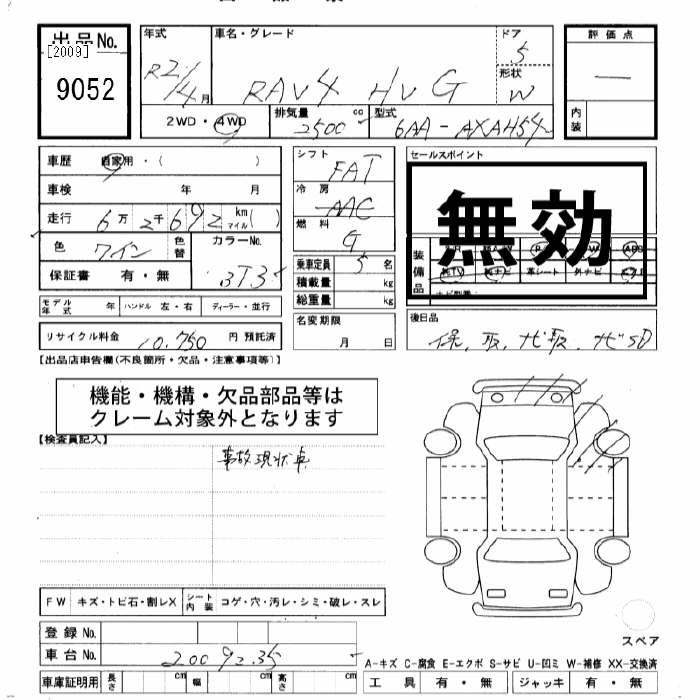 出品No.
[2009]
9052
年式
R2/4月
車名・グレード
RAV4 HV G
ドア
5
形状
W
評価点
—
内装
2WD・4WD
排気量
2500cc
型式
6AA-AXAH54
車歴 自家用・( )
車検 年 月
走行 6万2千692km マイル( )
色 ワイン
色替
カラーNo.
3T3
保証書 有・無
モデル年式 年 ハンドル 左・右 ディーラー・並行
リサイクル料金 10,750 円 預託済
シフト
FAT
冷房
AAC
燃料
G
乗車定員 5 名
積載量 kg
総重量 kg
名変期限
月 日
セールスポイント
無効
装備品
革シート
外ナビ
後日品
保、取、ナビ取、ナビSD
【出品店申告欄(不良箇所・欠品・注意事項等)】
機能・機構・欠品部品等は
クレーム対象外となります
【検査員記入】
事故現状車
FW キズ・トビ石・割レX
シート内装 コゲ・穴・汚レ・シミ・破レ・スレ
登録No.
車台No. 2009235
車庫証明用 長さ cm 幅 cm 高さ cm
スペア
A-キズ C-腐食 E-エクボ S-サビ U-凹ミ W-補修 XX-交換済
工具 有・無 ジャッキ 有・無